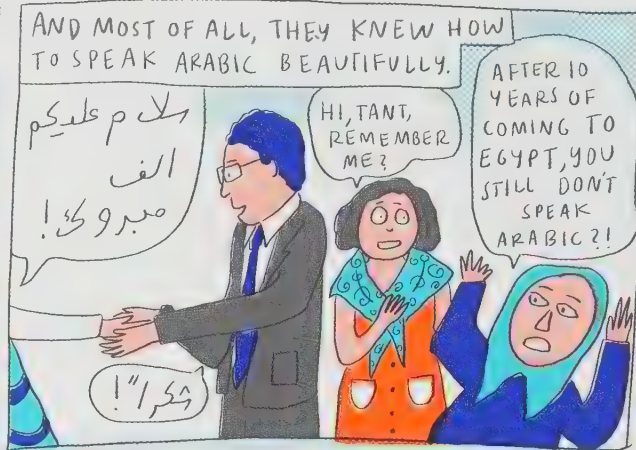 AND MOST OF ALL, THEY KNEW HOW
TO SPEAK ARABIC BEAUTIFULLY.
سلام عليكم
الف
مبروك!
شكرا"!
HI, TANT,
REMEMBER
ME?
AFTER 10
YEARS OF
COMING TO
EGYPT, YOU
STILL DON'T
SPEAK
ARABIC?!